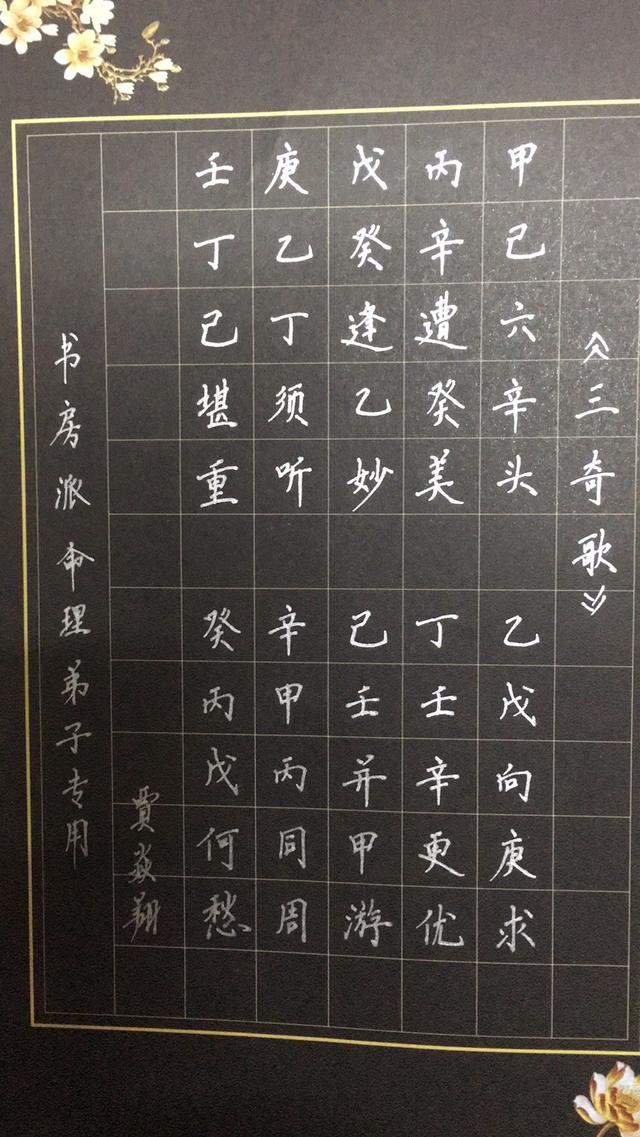 《三奇歌》
甲己六辛头 乙戊向庚求
丙辛遭癸美 丁壬辛更优
戊癸逢乙妙 己壬并甲游
庚乙丁须听 辛甲丙同周
壬丁己堪重 癸丙戊何愁
賈焱翔
书房派命理弟子专用